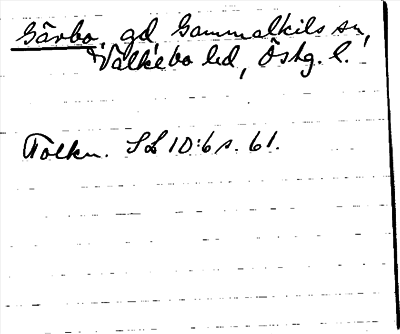 Gärbo, gd, Gammalkils sn,
Valkebo hd, Östg. l.
Tolkn. SL 10:6 s. 61.